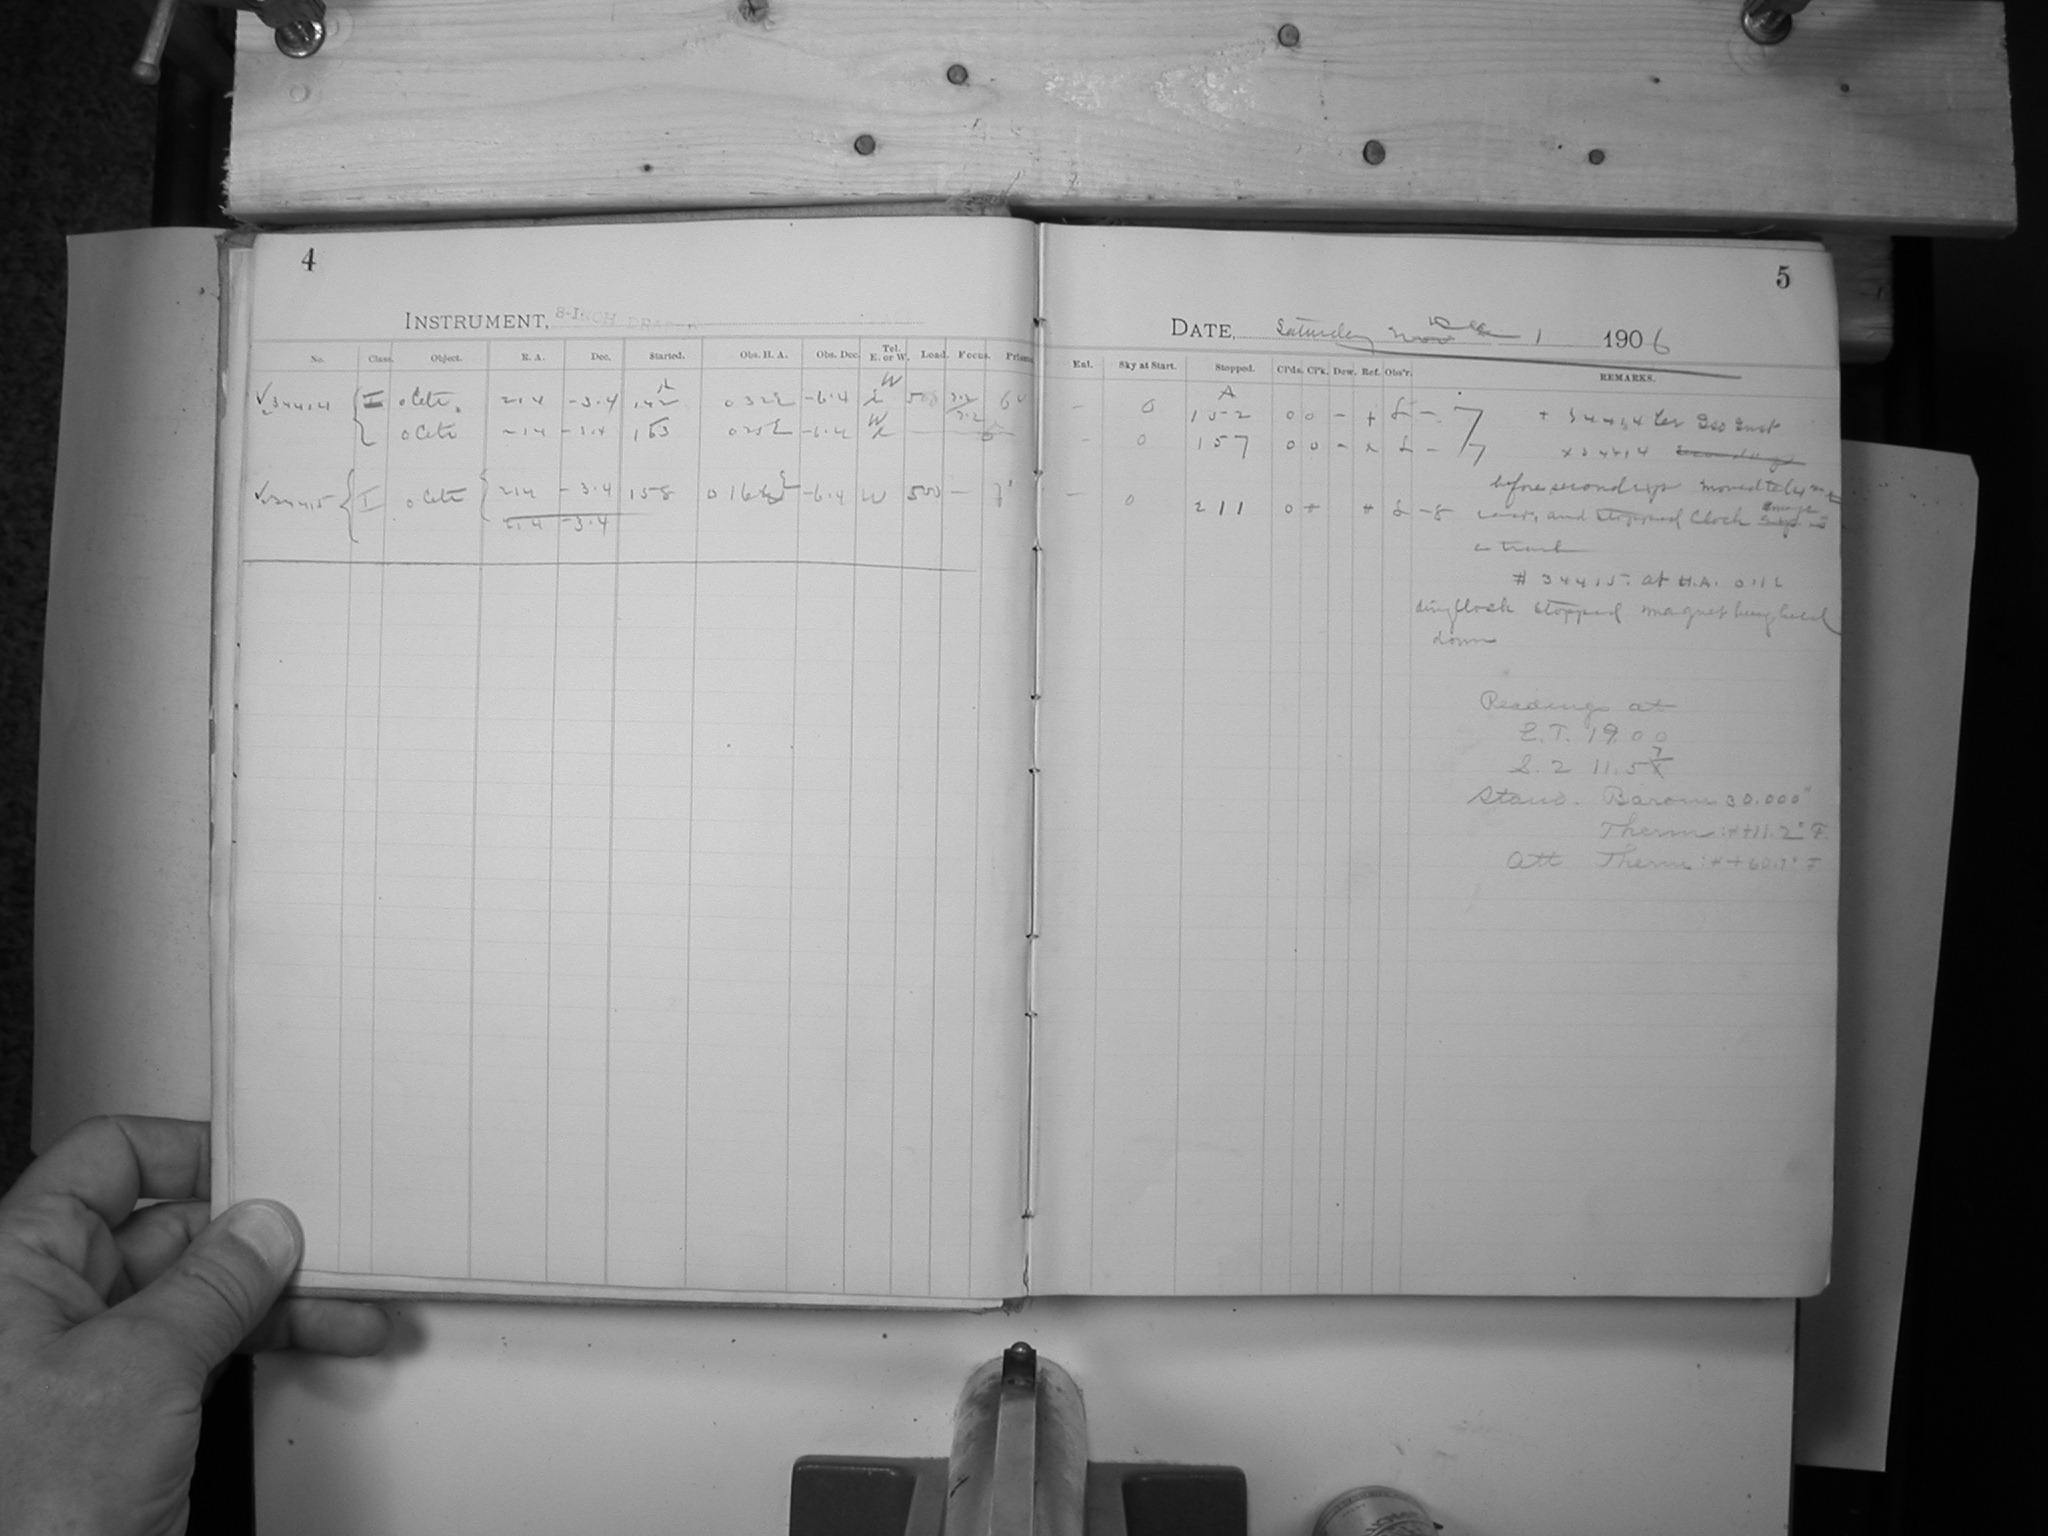 4
INSTRUMENT, 8-INCH DRAPER
No. Class. Object. R. A. Dec. Started. Obs. H. A. Obs. Dec. Tel. E. or W. Load. Focus. Prisms
34414 I o Ceti 214 -3.4 142 032E -6.4 W 500 60
o Ceti 214 -3.4 153 025E -6.4 W
34415 I o Ceti 214 -3.4 158 016 E -6.4 W 500 -
214 -3.4
5
DATE, Saturday Nov Dec 1 1906
Enl. Sky at Start. Stopped. Cl'ds. Cl'k. Dew. Ref. Obs'r. REMARKS.
- 0 152 0 0 - + - 7 + 34414
- 0 157 0 0 - x - 7 x 34414
before second exp moved tel
- 0 211 0 + + - 8 and stopped Clock image
a trail
# 34415. at H.A. 0 11
Clock stopped magnet being held
down
Readings at
E.T. 19.00
S. 2 11.5 7
Stand. Barom 30.000"
Therm: ++11.2° F.
Att Therm: ++60.7° F